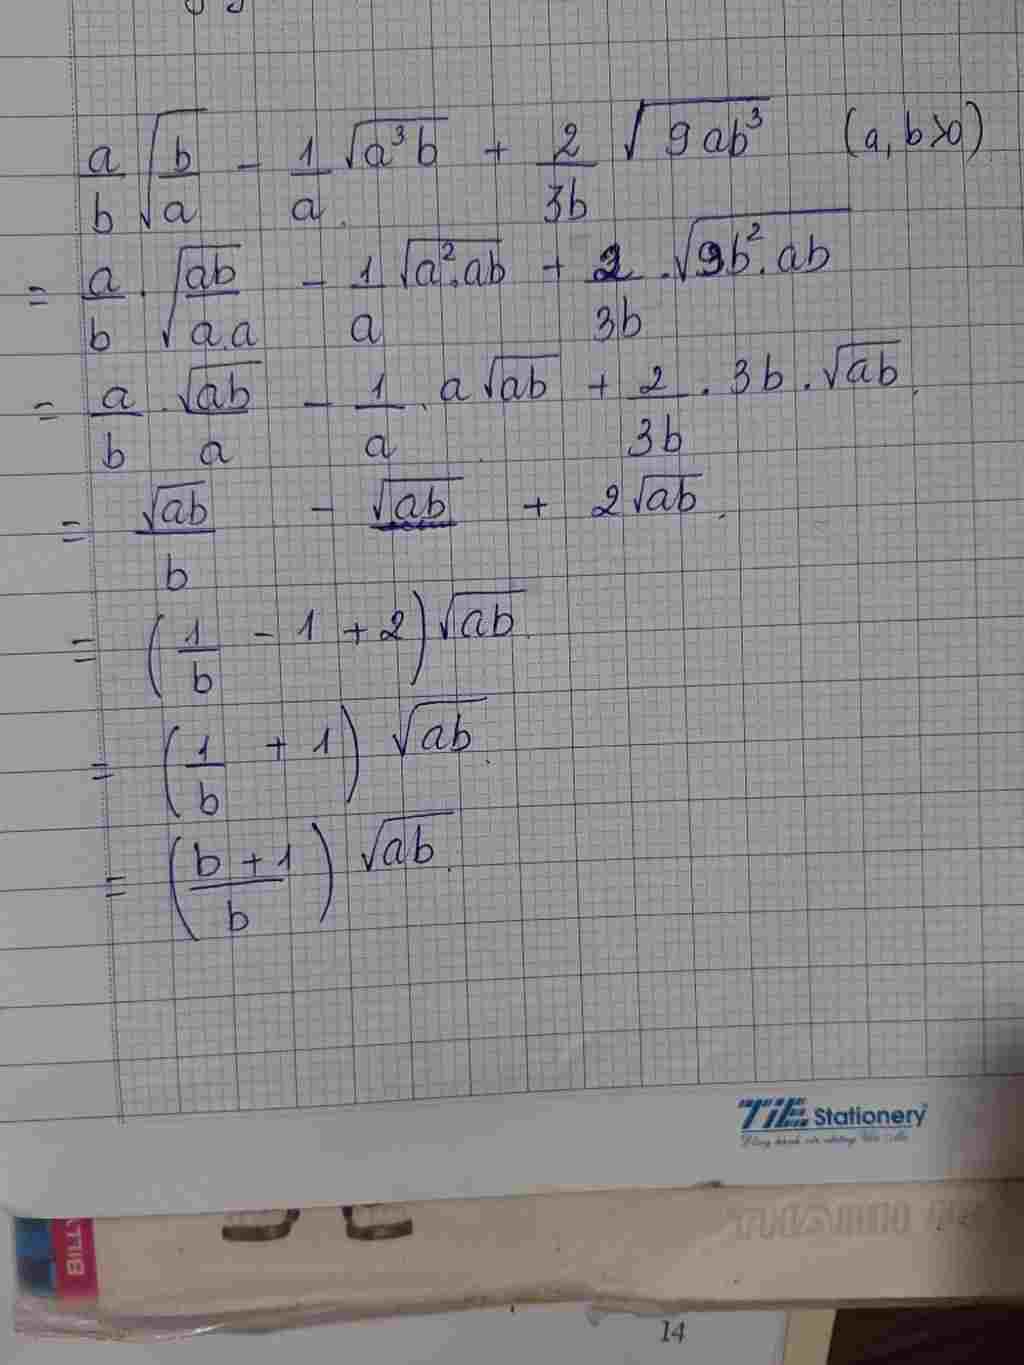 a/b √(b/a) - 1/a √(a³b) + 2/3b √(9ab³) (a, b>0)
= a/b . √(ab/a.a) - 1/a √(a².ab) + 2/3b . √(9b².ab)
= a/b . √ab/a - 1/a . a√ab + 2/3b . 3b . √ab
= √ab/b - √ab + 2√ab
= (1/b - 1 + 2) √ab
= (1/b + 1) √ab
= (b + 1/b) √ab
TiE Stationery
14